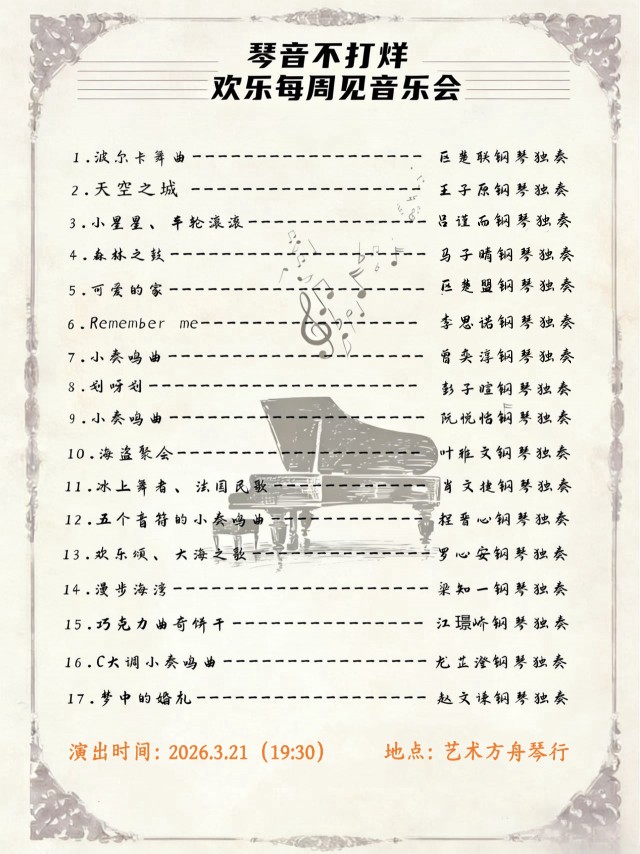 琴音不打烊
欢乐每周见音乐会
1.波尔卡舞曲------------------------ 巨楚联钢琴独奏
2.天空之城------------------------ 王子原钢琴独奏
3.小星星、车轮滚滚------------------ 吕谨而钢琴独奏
4.森林之鼓------------------------ 马子晴钢琴独奏
5.可爱的家------------------------ 巨楚盟钢琴独奏
6.Remember me---------------------- 李思诺钢琴独奏
7.小奏鸣曲------------------------ 曾奕淳钢琴独奏
8.划呀划------------------------ 彭子暄钢琴独奏
9.小奏鸣曲------------------------ 阮悦恬钢琴独奏
10.海盗聚会------------------------ 叶雅文钢琴独奏
11.冰上舞者、法国民歌---------------- 肖文捷钢琴独奏
12.五个音符的小奏鸣曲---------------- 程晋心钢琴独奏
13.欢乐颂、大海之歌------------------ 罗心安钢琴独奏
14.漫步海湾------------------------ 梁知一钢琴独奏
15.巧克力曲奇饼干-------------------- 江璟峤钢琴独奏
16.C大调小奏鸣曲-------------------- 龙芷澄钢琴独奏
17.梦中的婚礼---------------------- 赵文谦钢琴独奏
演出时间: 2026.3.21（19:30） 地点: 艺术方舟琴行